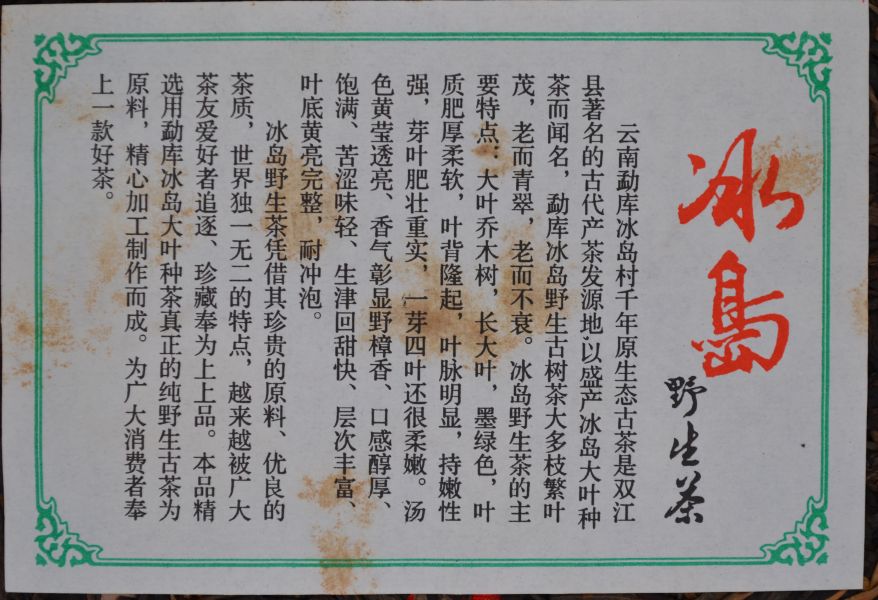 冰岛
野生茶
云南勐库冰岛村千年原生态古茶是双江
县著名的古代产茶发源地，以盛产冰岛大叶种
茶而闻名，勐库冰岛野生古树茶大多枝繁叶
茂，老而青翠，老而不衰。冰岛野生茶的主
要特点：大叶乔木树，长大叶，墨绿色，叶
质肥厚柔软，叶背隆起，叶脉明显，持嫩性
强，芽叶肥壮重实，一芽四叶还很柔嫩。汤
色黄莹透亮、香气彰显野樟香、口感醇厚、
饱满、苦涩味轻、生津回甜快、层次丰富、
叶底黄亮完整，耐冲泡。
冰岛野生茶凭借其珍贵的原料、优良的
茶质，世界独一无二的特点，越来越被广大
茶友爱好者追逐、珍藏奉为上上品。本品精
选用勐库冰岛大叶种茶真正的纯野生古茶为
原料，精心加工制作而成。为广大消费者奉
上一款好茶。